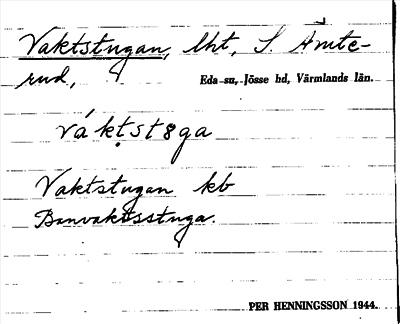 Vaktstugan, lht, S. Åmte-
rud,
Eda sn, Jösse hd, Värmlands län.
váktst8ga
Vaktstugan kb
Banvaktsstuga.
PER HENNINGSSON 1944.